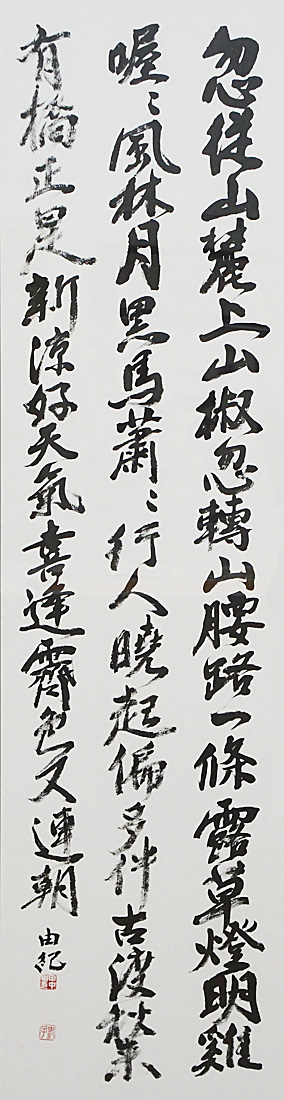 忽従山麓上山椒忽轉山腰路一條露草燈明雞
喔〻風林月黒馬蕭〻行人曉起偏多伴古渡秋來
有橋正是新涼好天氣喜逢霽色又連朝
由紀